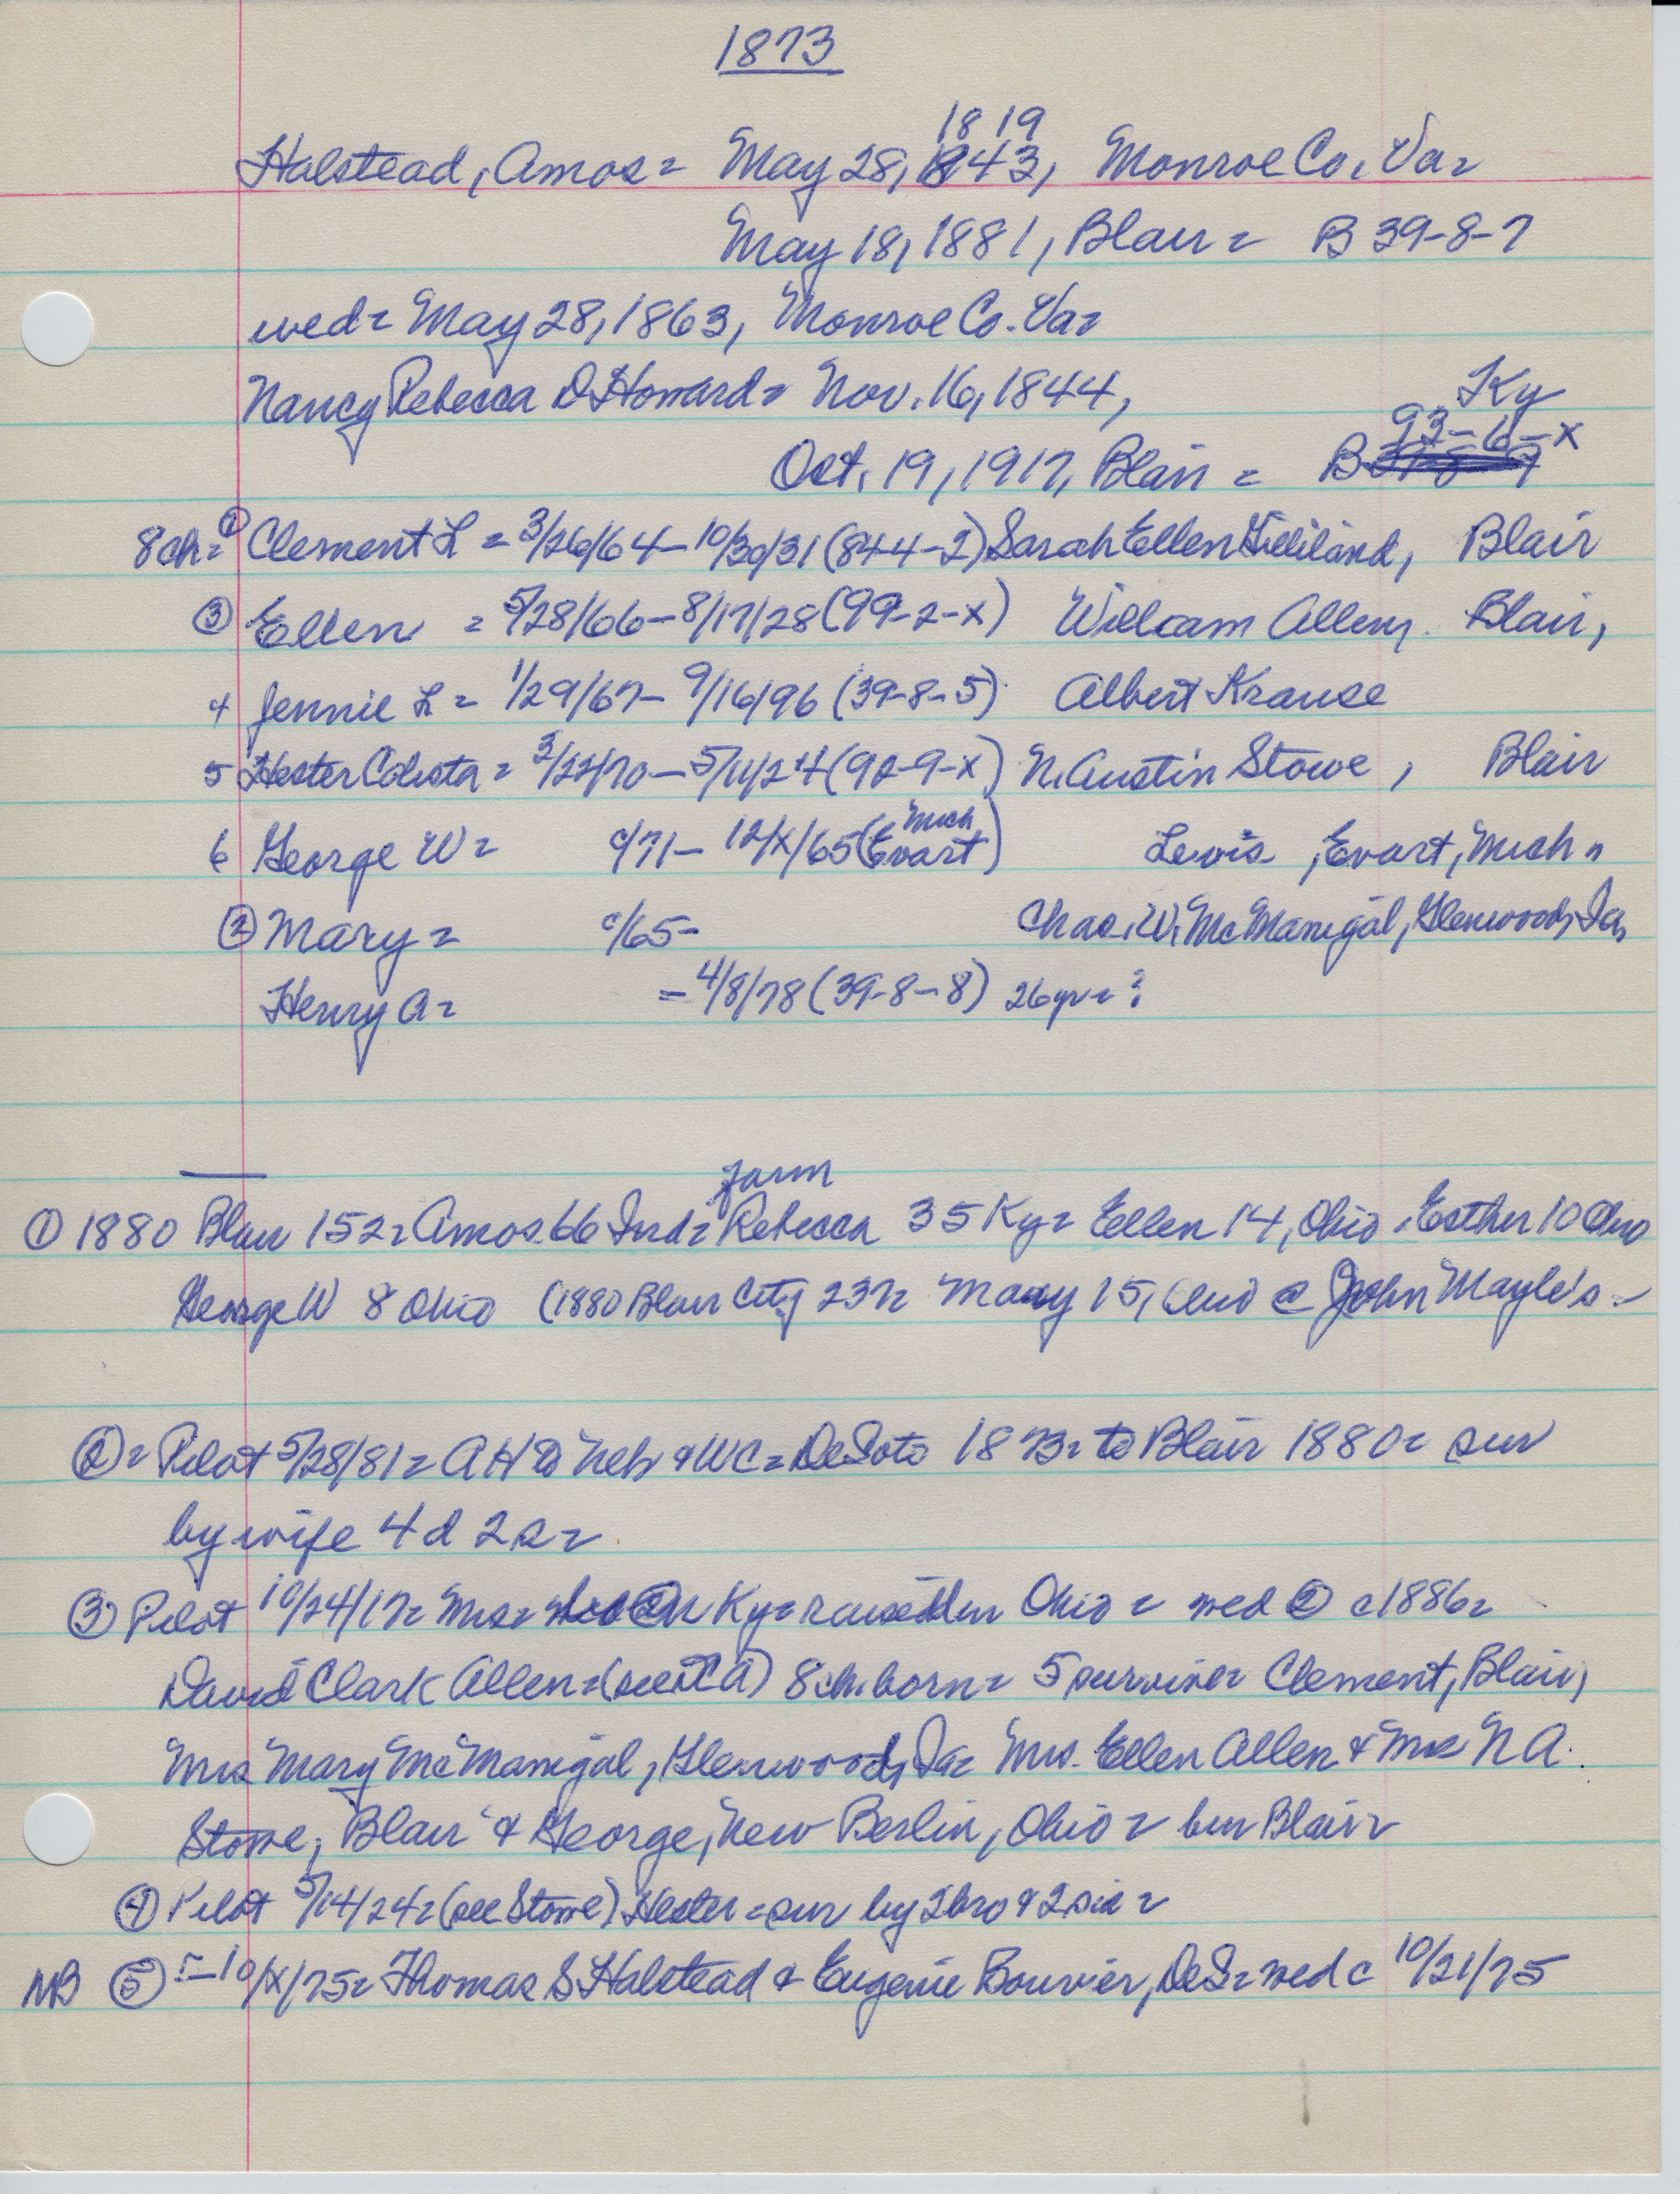 1873
18 19
Halstead, Amos = May 28, 1843, Monroe Co. Va =
May 18, 1881, Blair = B 39-8-7
wed = May 28, 1863, Monroe Co. Va =
Nancy Rebecca D Howard = Nov. 16, 1844, Ky
93-6-x
Oct. 19, 1917, Blair = B
8 ch = ① Clement L = 3/26/64 - 10/30/31 (844-2) Sarah Ellen Gilliland, Blair
③ Ellen = 5/28/66 - 8/17/28 (99-2-x) William Allen, Blair,
4 Jennie L = 1/29/67 - 9/16/96 (39-8-5) Albert Krause
5 Hester Celesta = 3/22/70 - 5/11/24 (92-9-x) N. Austin Stowe, Blair
6 George W = c/71 - 12/x/65 (Evart Mich) Lewis, Evart, Mich =
② Mary = c/65 - Chas. W. McManigal, Glenwood, Ia,
Henry A = = 4/8/78 (39-8-8) 26 yr = ?
farm
① 1880 Blair 152 = Amos 66 Ind = Rebecca 35 Ky = Ellen 14, Ohio, Esther 10 Ohio
George W 8 Ohio (1880 Blair City 237 = Mary 15, Ohio @ John Mayle's -
② = Pilot 5/28/81 = AH to Neb & WC = DeSoto 1873 = to Blair 1880 = sur
by wife 4 d 2 s =
③ Pilot 10/24/17 = Mrs = Ky = raised Ohio = wed ② c 1886 =
David Clark Allen = (see A) 8 ch. born = 5 survive = Clement, Blair,
Mrs Mary McManigal, Glenwood, Ia = Mrs. Ellen Allen & Mrs N A.
Stowe, Blair & George, New Berlin, Ohio = bur Blair
④ Pilot 5/14/24 = (see Stowe) Hester = sur by 2 bro & 2 sis =
NB ⑤ = - 10/x/75 = Thomas S Halstead & Eugenie Bouvier, DeS = wed c 10/21/75